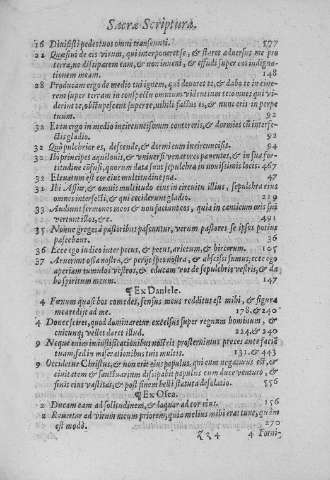 Sacræ Scripturæ.
16 Divisisti pedes tuos omni transeunti. 577
22 Quæsivi de eis virum, qui interponeret se, & staret adversus me pro
terra, ne dissiparem eam, & non inveni, & effudi super eos indigna-
tionem meam. 148
28 Producam ergo de medio tui ignem, qui devoret te, & dabo te in cinere
rem super terram in conspectu omnium videntium te: omnes qui vi-
derint te, obstupescent super te, nihili factus es, & non eris in perpe
tuum. 92
32 Et tu ergo in medio incircumcisorum contereris, & dormies cum interfe-
ctis gladio. 92
32 Quo pulchrior es, descende, & dormi cum incircumcisis. 94
32 Ibi principes aquilonis, & universi venatores paventes, & in sua for-
titudine confusi, quorum data sunt sepulchra in novissimis locis. 467
32 Elam non est cor eius multitudine sua. 47
32 Ibi Assur, & omnis multitudo eius in circuitu illius, sepulchra eius
omnes interfecti, & qui ceciderunt gladio. 29
33 Audiunt sermones meos & non faciunt eos, quia in canticum oris sui
vertunt illos, &c. 491
35 Nonne greges à pastoribus pascuntur, verum pastores se ipsos potius
pascebant. 36
36 Ecce ego iudico inter pecus, & pecus, arietum, & hircorum. 105
37 Aruerunt ossa nostra, & periit spes nostra, & abscissi sumus; ecce ego
aperiam tumulos vestros, & educam vos de sepulchris vestris, & da-
bo spiritum meum. 147
¶ Ex Daniele.
4 Fœnum quasi bos comedes, sensus meus redditus est mihi, & figura
mea rediit ad me. 178. & 240
4 Donec scires, quod dominaretur excelsus super regnum hominum, &
cuicunq; vellet daret illud. 224. & 240
9 Neque enim in iustificationibus nostris prosternimus preces ante faciē
tuam, sed in miserationibus tuis multis. 131. & 443
9 Occidetur Christus, & non erit eius populus, qui eum negaturus est, &
civitatem & sanctuarium dissipabit populus cum duce venturo, &
finis eius vastitas, & post finem belli statuta desolatio. 556
¶ Ex Osea.
2 Ducam eam ad solitudinem, & loquar ad cor eius. 156
2 Revertar ad virum meum priorem, quia melius mihi erat tunc, quàm
est modò. 270
4 Forni-